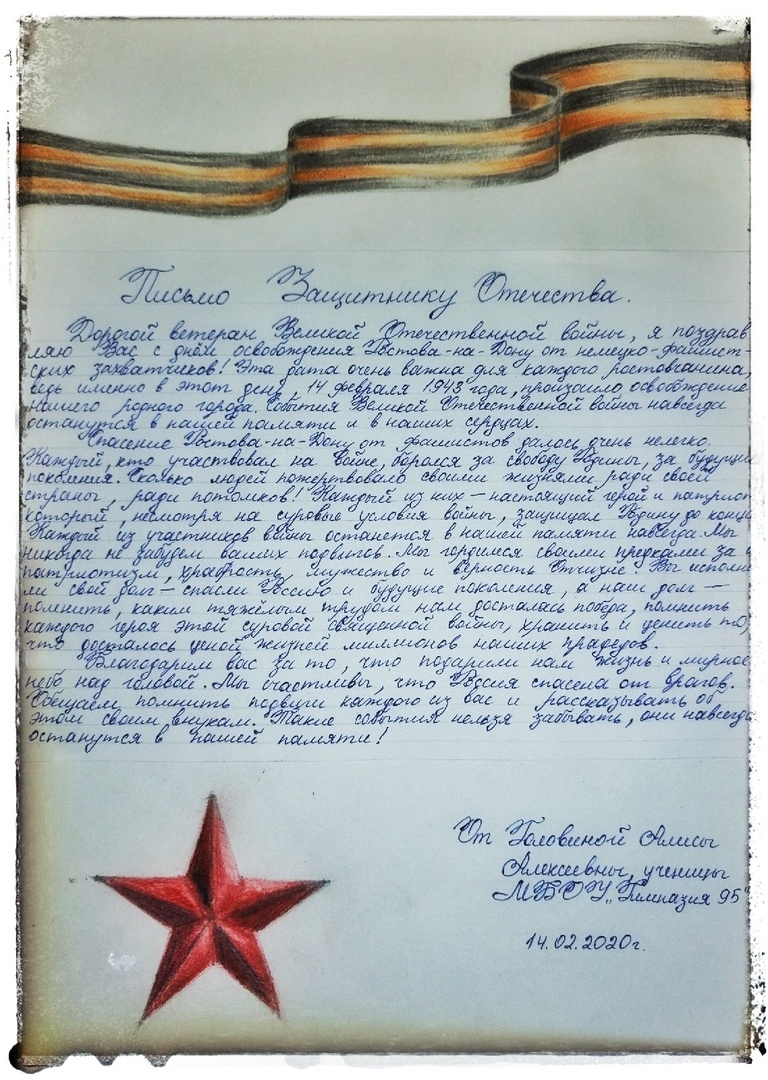 Письмо Защитнику Отечества.
Дорогой ветеран Великой Отечественной войны, я поздрав
ляю Вас с днём освобождения Ростова-на-Дону от немецко-фашист-
ских захватчиков! Эта дата очень важна для каждого ростовчанина,
ведь именно в этот день, 14 февраля 1943 года, произошло освобождение
нашего родного города. События Великой Отечественной войны навсегда
останутся в нашей памяти и в наших сердцах.
Спасение Ростова-на-Дону от фашистов далось очень нелегко.
Каждый, кто участвовал на войне, боролся за свободу Родины, за будущие
поколения. Сколько людей пожертвовало своими жизнями ради своей
страны, ради потомков! Каждый из них – настоящий герой и патриот
который, несмотря на суровые условия войны, защищал Родину до конца
Каждый из участников войны останется в нашей памяти навсегда. Мы
никогда не забудем ваших подвигов. Мы гордимся своими предками за
патриотизм, храбрость, мужество и верность Отчизне! Вы исполни
ли свой долг – спасли Россию и будущие поколения, а наш долг –
помнить, каким тяжёлым трудом нам досталась победа, помнить
каждого героя этой суровой священной войны, хранить и ценить то,
что досталось ценой жизней миллионов наших прадедов.
Благодарим вас за то, что подарили нам жизнь и мирное
небо над головой. Мы счастливы, что Россия спасена от врагов.
Обещаем помнить подвиги каждого из вас и рассказывать об
этом своим внукам. Такие события нельзя забывать, они навсегда
останутся в нашей памяти!
От Головиной Алисы
Алексеевны, ученицы
МБОУ „Гимназия 95"
14.02.2020г.